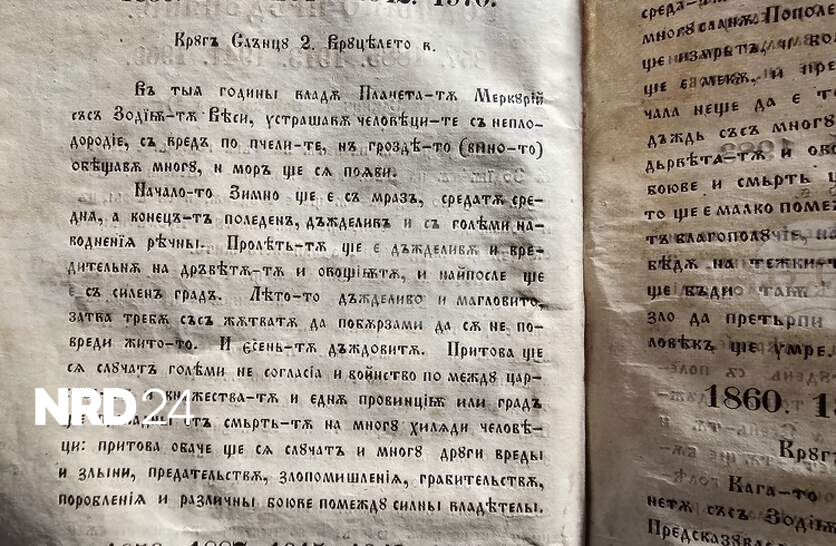 Крꙋгъ Слънцꙋ 2. Врꙋцѣлето в.
Въ тыя години владѫ Планета-тѫ Меркꙋрій
със Зодїѭ-тѫ Вѣси, устрашавѫ человѣци-те съ непло-
дородіе, съ вредъ по пчели-те, нъ гроздѣ-то (вино-то)
обѣщавѫ многꙋ, и моръ ще сѧ появи.
Начало-то Зимно ще є съ мразъ, средатѫ сре-
днѧ, а конецъ-тъ поледенъ, дъжделивъ и съ голѣми на-
водненїя рѣчны. Пролѣть-тѫ ще є дъжделивѫ и вре-
дительнѫ на дръвѣтѫ-тѫ и овощїѭтѫ, и найпосле ще
є съ силенъ градъ. Лѣто-то дъжделиво и магловито,
затва требѫ със жѫтватѫ да побързами да сѫ не по-
вреди жито-то. И єсень-тѫ дъждовитѫ. Притова ще
сѧ слꙋчатъ голѣми не согласіа и войнство по междꙋ цар-
книжества-тѫ и єднѫ провинціѭ или градъ
отъ смерть-тѫ на многꙋ хиляди человѣ-
ци: притова обаче ще сѧ слꙋчатъ и многꙋ дрꙋги вреды
и злыни, предательствѫ, злопомишленїя, грабительствѫ,
поробленїя и различны боюве помеждꙋ силны владѣтелы.
NRD24
среда-
многꙋ
ще
ще
чала неще да є
дъждь със многꙋ
дървѣта-тѫ и
боюве и смърть
то ще є малко
тъ благополꙋчіе,
бѣдѫ на тежки
ще бъди
зло да претърпи
ловѣкъ ще умре
1860.
Крꙋг
Кага-то
нетѫ със Зодїѭ
Предсказꙋва